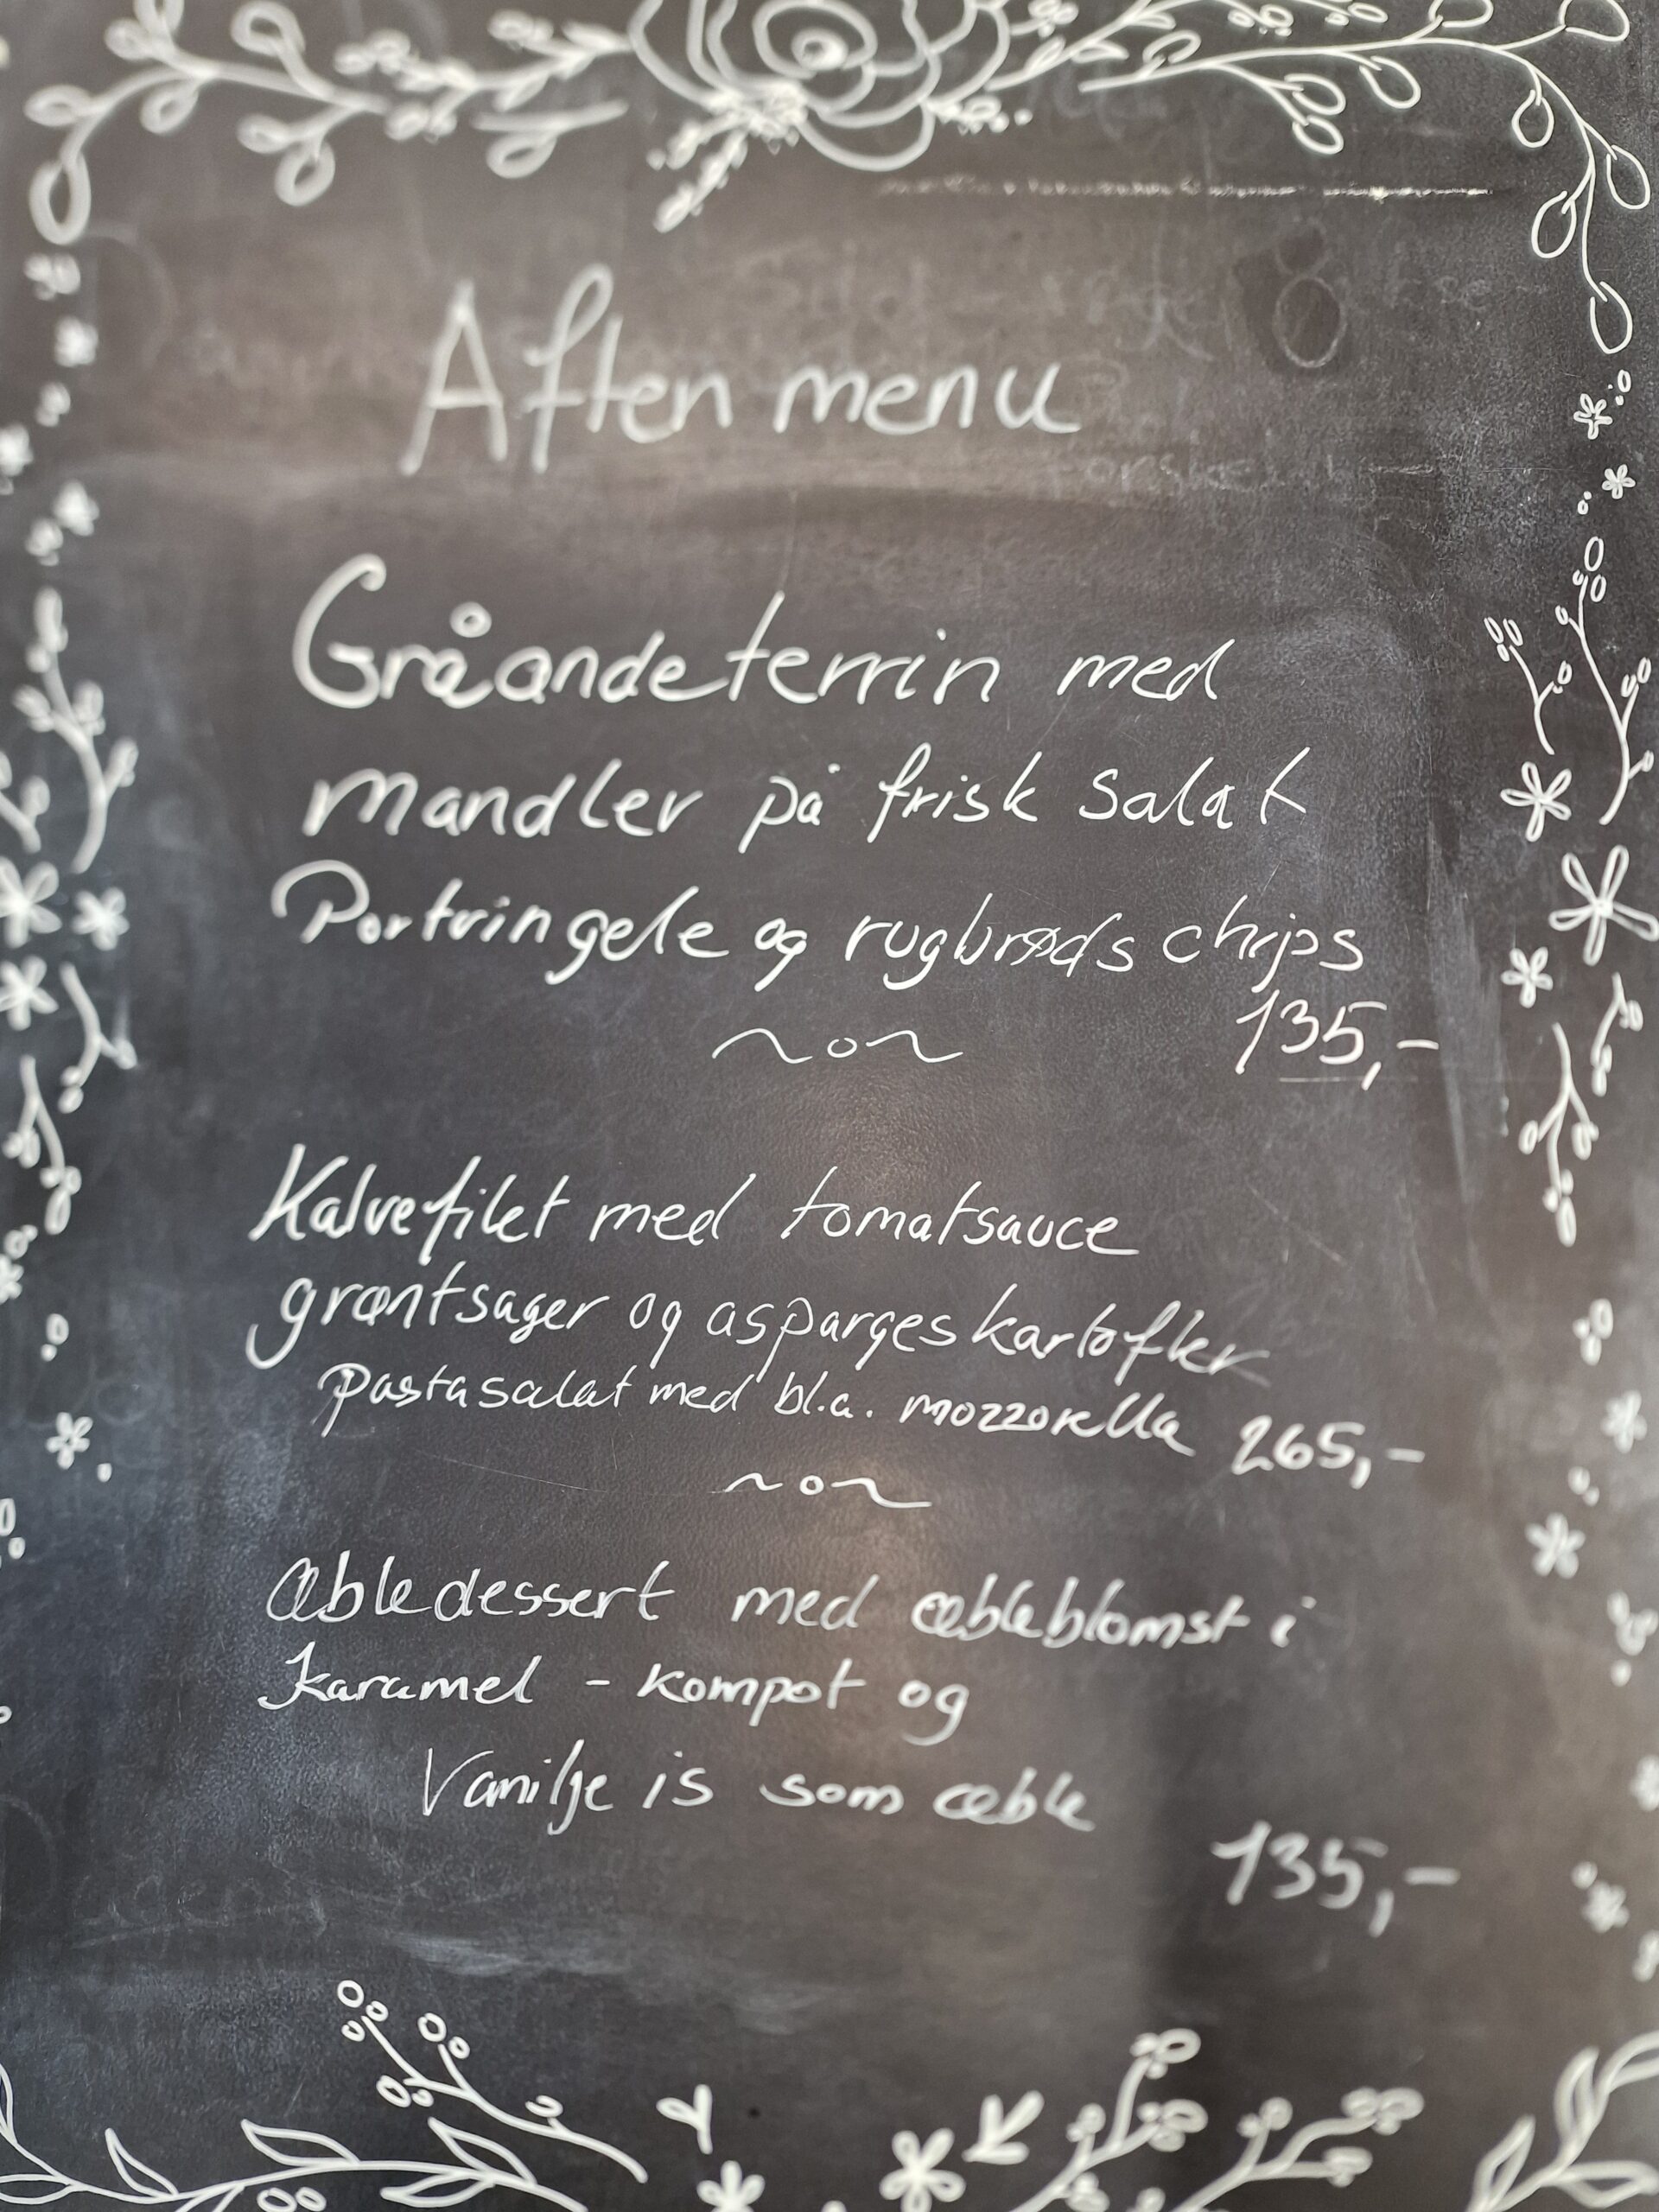 Aften menu
Gråandeterrin med
mandler på frisk salat
Portvingele og rugbrøds chips
135,-
Kalvefilet med tomatsauce
grøntsager og asparges kartofler
pastasalat med bl.a. mozzorella 265,-
Æbledessert med æbleblomst i
Karamel - kompot og
Vanilje is som æble
135,-